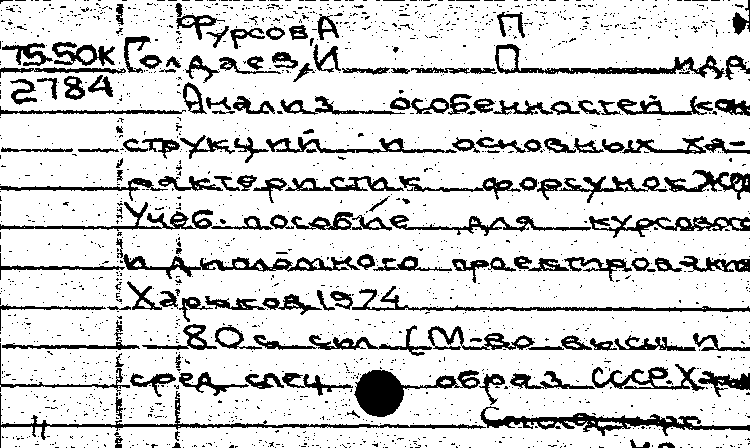 Фурсов, А П
75.50К Голдаев, И П и др
2784
Анализ особенностей кон
струкций и основных ха-
рактеристик форсунок ЖРД
Учеб. пособие для курсового
и дипломного проектирования
Харьков, 1974
80 с. с ил. (М-во высш и
сред спец. образ СССР. Харьк
11